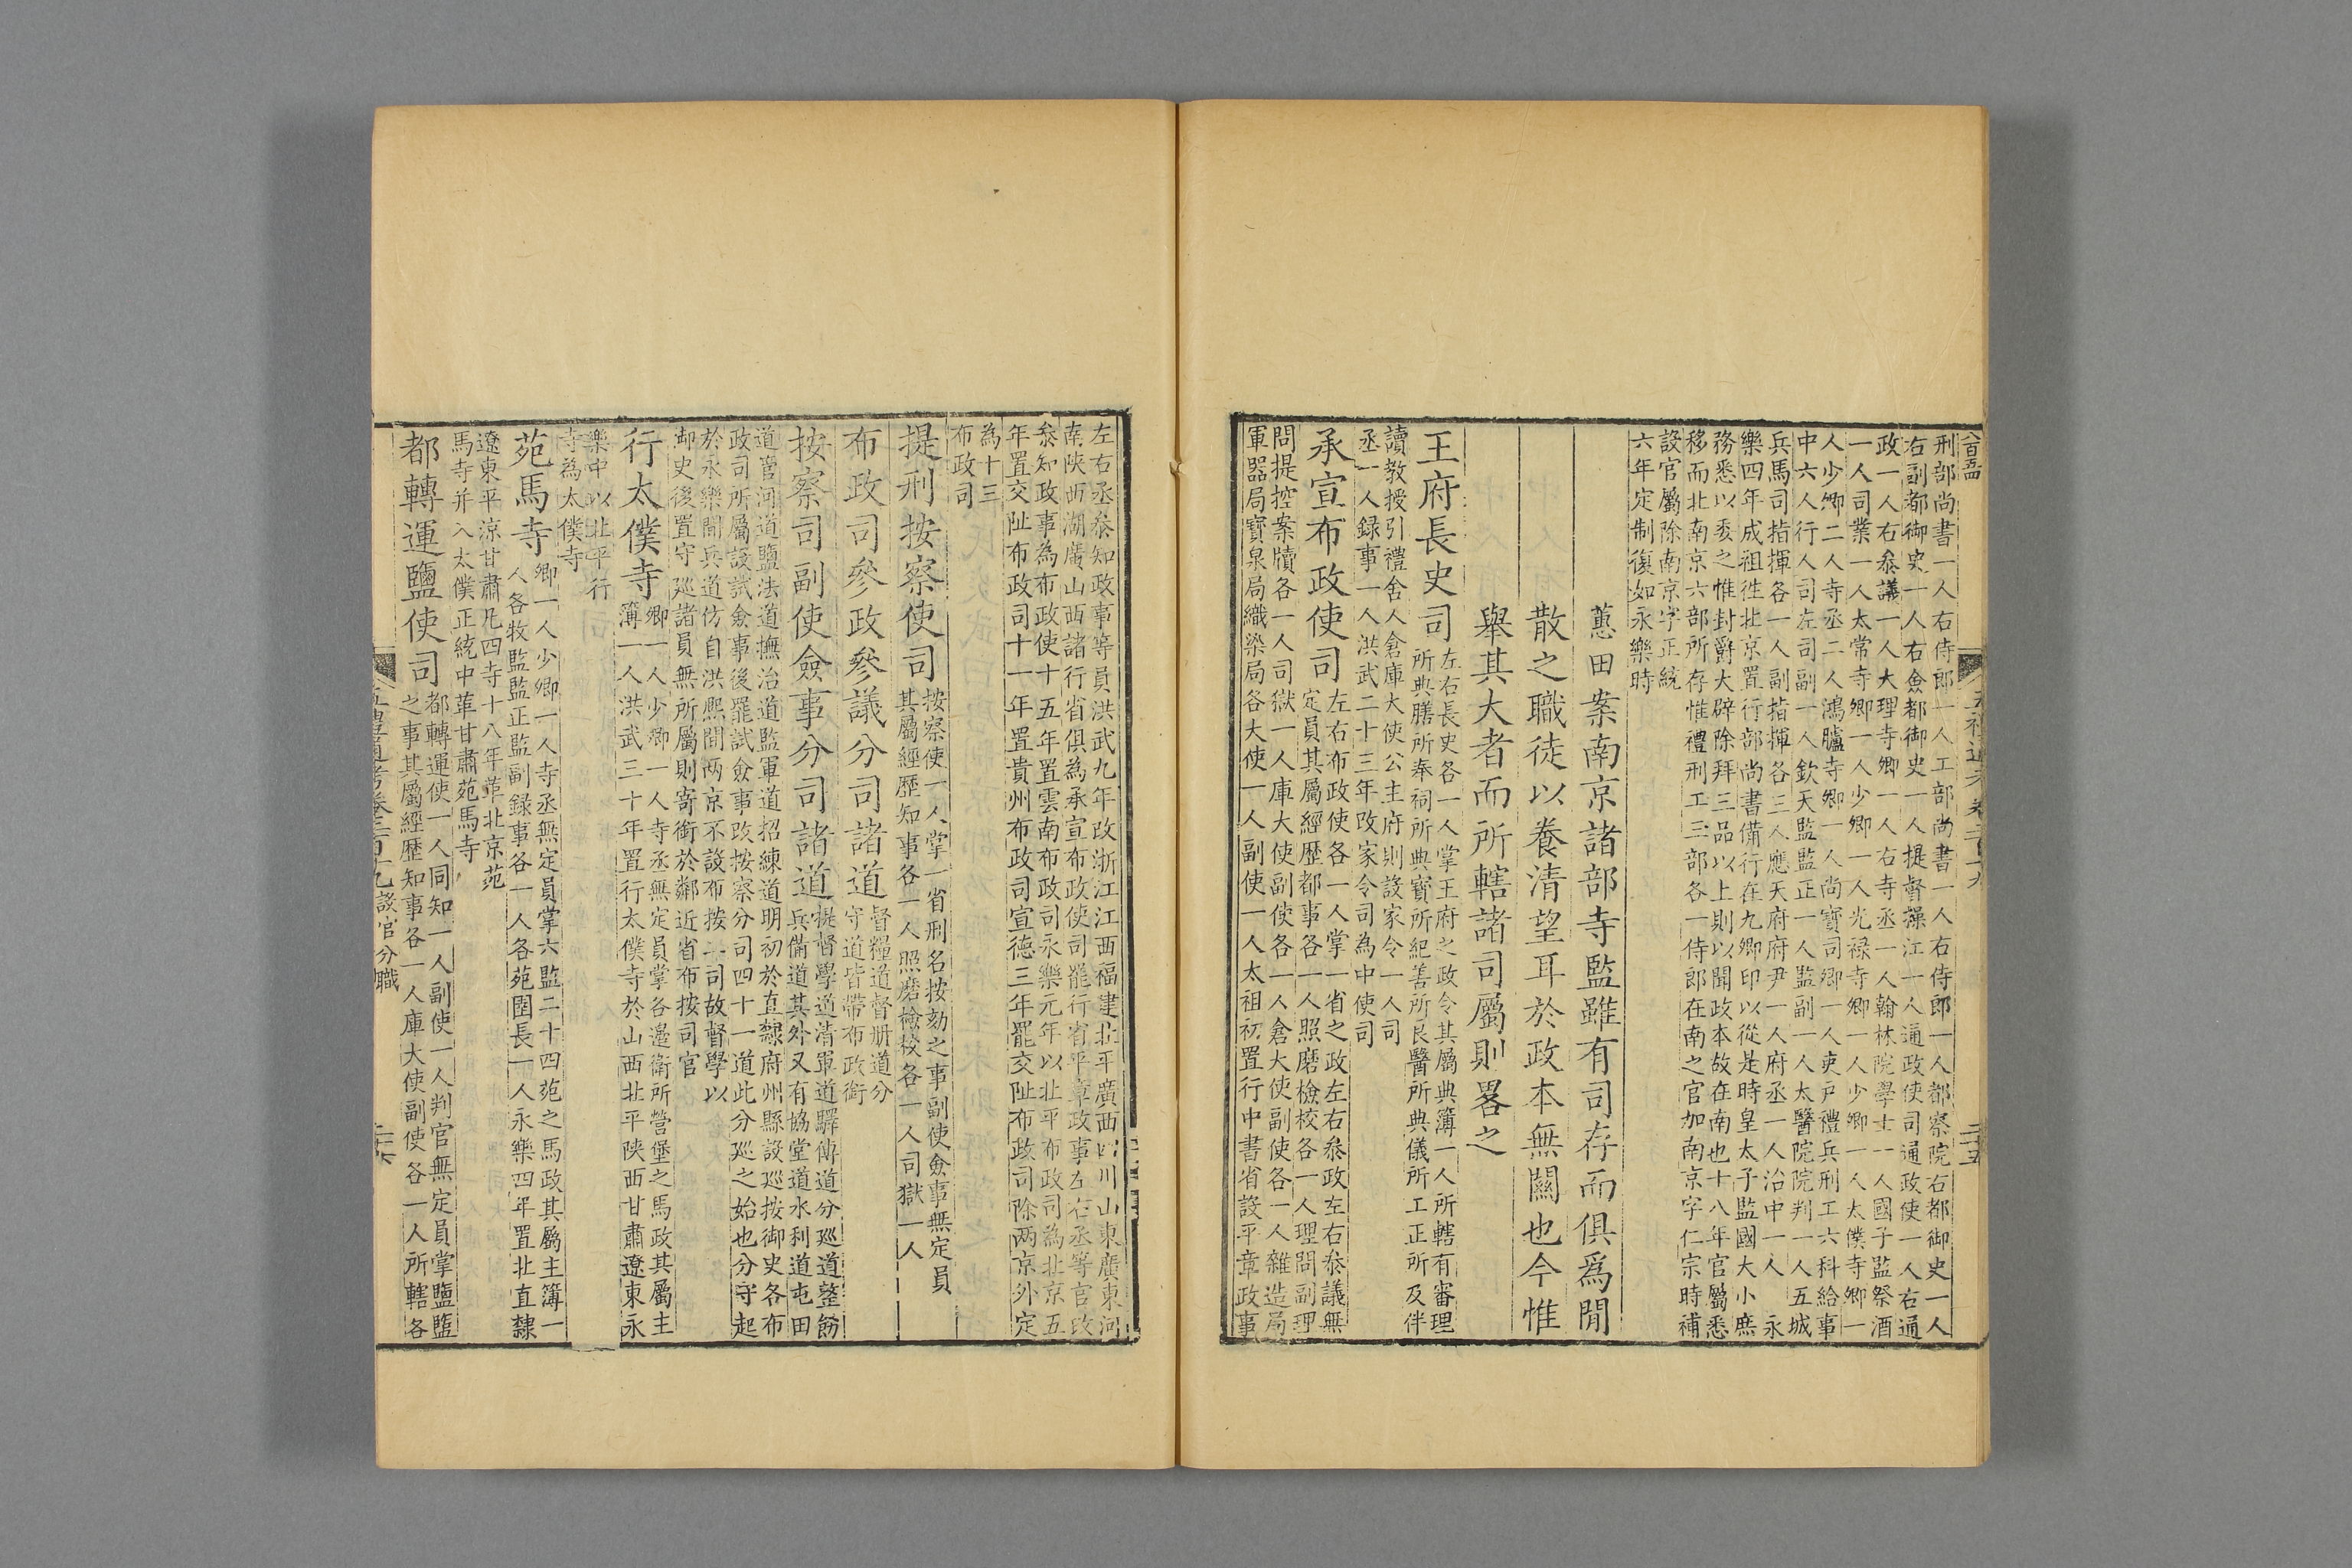 八百五十四
刑部尚書一人右侍郎一人工部尚書一人右侍郎一人都察院右都御史一人
右副都御史一人右僉都御史一人提督操江一人通政使司通政使一人右通
政一人右叅議一人大理寺卿一人右寺丞一人翰林院學士一人國子監祭酒
一人司業一人太常寺卿一人少卿一人光禄寺卿一人少卿一人太僕寺卿一
人少卿二人寺丞二人鴻臚寺卿一人尚寶司卿一人吏戸禮兵刑工六科給事
中六人行人司左司副一人欽天監監正一人監副一人太醫院院判一人五城
兵馬司指揮各一人副指揮各三人應天府府尹一人府丞一人治中一人　永
樂四年成祖徃北京置行部尚書備行在九卿印以從是時皇太子監國大小庶
務悉以委之惟封爵大辟除拜三品以上則以聞政本故在南也十八年官屬悉
移而北南京六部所存惟禮刑工三部各一侍郎在南之官加南京字仁宗時補
設官屬除南京字正統
六年定制復如永樂時
蕙田案南京諸部寺監雖有司存而俱爲閒
散之職徒以養清望耳於政本無關也今惟
舉其大者而所轄諸司屬則畧之
王府長史司
左右長史各一人掌王府之政令其屬典簿一人所轄有審理
所典膳所奉祠所典寶所紀善所良醫所典儀所工正所及伴
讀教授引禮舍人倉庫大使公主府則設家令一人司
丞一人録事一人洪武二十三年改家令司為中使司
承宣布政使司
左右布政使各一人掌一省之政左右叅政左右叅議無
定員其屬經歴都事各一人照磨檢校各一人理問副理
問提控案牘各一人司獄一人庫大使副使各一人倉大使副使各一人雜造局
軍器局寳泉局織染局各大使一人副使一人太祖初置行中書省設平章政事
左右丞叅知政事等員洪武九年改浙江江西福建北平廣西四川山東廣東河
南陝西湖廣山西諸行省俱為承宣布政使司罷行省平章政事左右丞等官改
叅知政事為布政使十五年置雲南布政司永樂元年以北平布政司為北京五
年置交阯布政司十一年置貴州布政司宣德三年罷交阯布政司除两京外定
為十三
布政司
提刑按察使司
按察使一人掌一省刑名按劾之事副使僉事無定員
其屬經歴知事各一人照磨檢校各一人司獄一人
布政司參政參議分司諸道
督糧道督册道分
守道皆帶布政銜
按察司副使僉事分司諸道
提督學道清軍道驛傳道分廵道整飭
兵備道其外又有協堂道水利道屯田
道管河道鹽法道撫治道監軍道招練道明初於直隸府州縣設廵按御史各布
政司所屬設試僉事後罷試僉事改按察分司四十一道此分廵之始也分守起
於永樂間兵道仿自洪熙間两京不設布按二司故督學以
御史後置守廵諸員無所屬則寄銜於鄰近省布按司官
行太僕寺
卿一人少卿一人寺丞無定員掌各邊衛所營堡之馬政其屬主
簿一人洪武三十年置行太僕寺於山西北平陝西甘肅遼東永
樂中以北平行
寺為太僕寺
苑馬寺
卿一人少卿一人寺丞無定員掌六監二十四苑之馬政其屬主簿一
人各牧監監正監副録事各一人各苑圉長一人永樂四年置北直隸
遼東平涼甘肅凡四寺十八年革北京苑
馬寺并入太僕正統中革甘肅苑馬寺
都轉運鹽使司
都轉運使一人同知一人副使一人判官無定員掌鹽鹽
之事其屬經歴知事各一人庫大使副使各一人所轄各
五禮通考卷二百十九設官分職
二十六